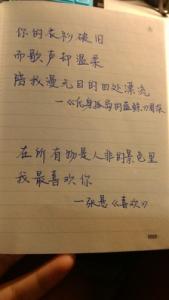 你的衣衫破旧
而歌声却温柔
陪我漫无目的四处漂流
—《化身孤岛的蓝鲸》周深
在所有物是人非的景色里
我最喜欢你
—张悬《喜欢》